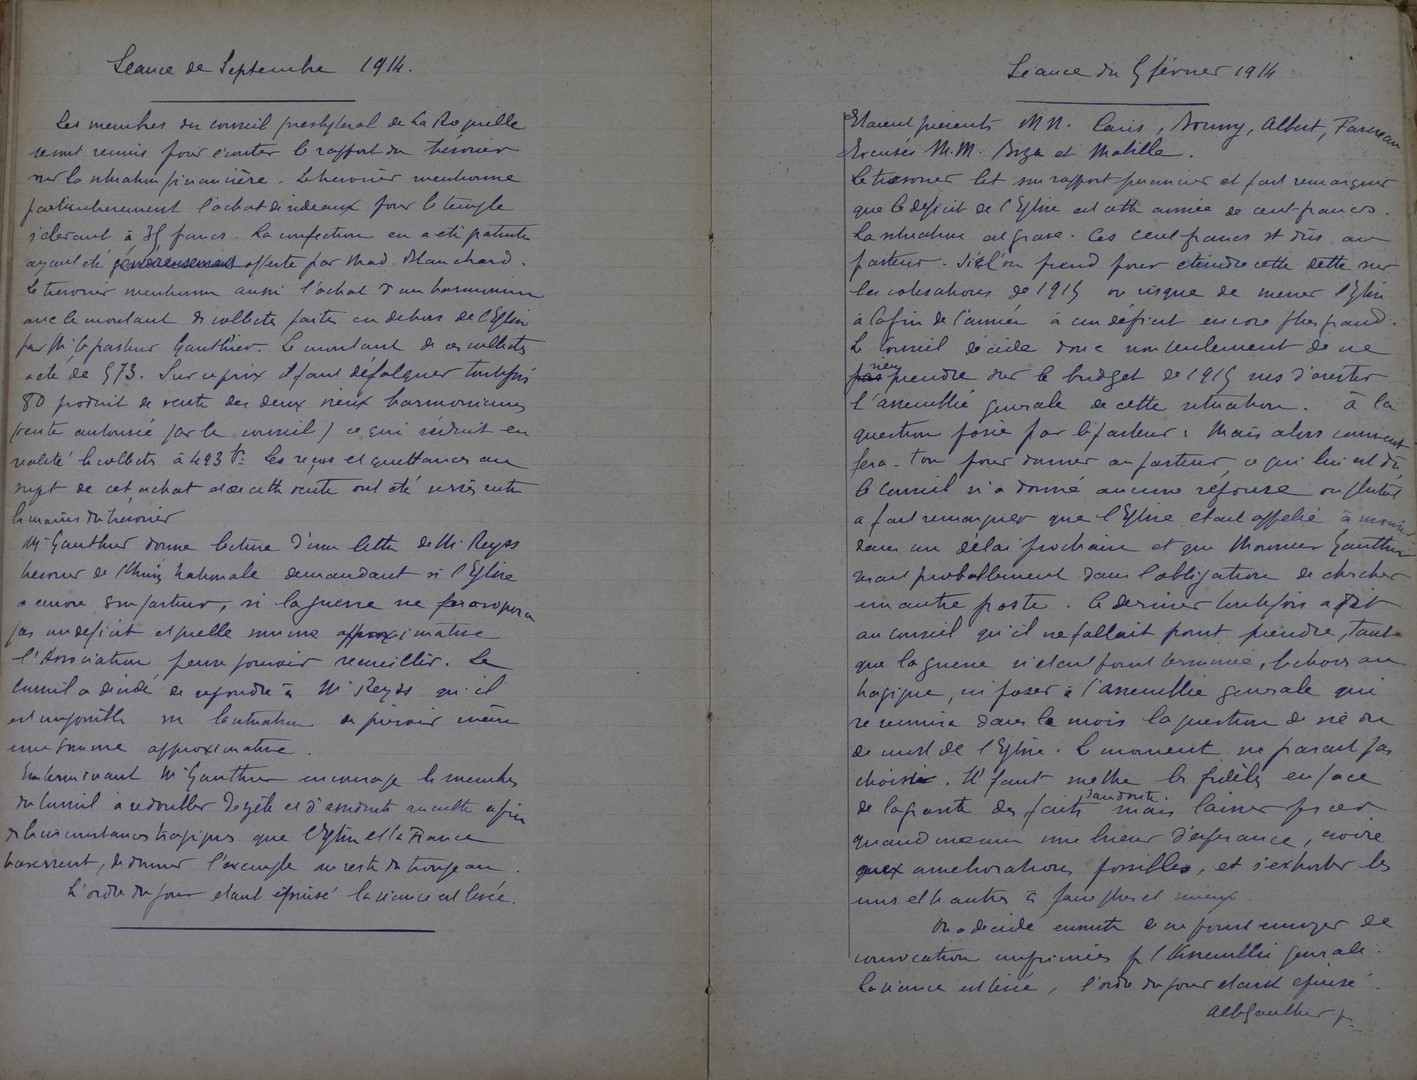 Séance de Septembre 1914.
Les membres du conseil presbytéral de La Roquille
se sont reunis pour écouter le rapport du tresorier
sur la situation financière. Le tresorier mentionne
particulierement l'achat de rideaux pour le temple
s'elevant à 35 francs. La confection en a été gratuite
ayant été généreusement offerte par Mad. Blanchard.
Le tresorier mentionne aussi l'achat d'un harmonium
avec le montant de collectes faites en dehors de l'Eglise
par Mr le pasteur Gauthier. Le montant de ces collectes
a été de 573. Sur ce prix il faut défalquer toutefois
80 produit de vente des deux vieux harmoniums
(vente autorisée par le conseil) ce qui réduit en
realité le collectes à 493 f. Les reçus et quittances au
sujet de cet achat et de cette vente ont été versés entre
les mains du trésorier
Mr Gauthier donne lecture d'une lettre de Mr Reyss
tresorier de l'Union Nationale demandant si l'Eglise
a encore son pasteur, si la guerre ne
pas un deficit et quelle somme approximative
l'Association pense pouvoir recueillir. Le
Conseil a décidé de repondre à Mr Reyss qu'il
est impossible vu la situation de prévoir même
une somme approximative.
En terminant Mr Gauthier encourage les membres
du Conseil à redoubler de zèle et d'assiduité au culte afin
circonstances tragiques que l'Eglise et la France
traversent, de donner l'exemple au reste du troupeau.
L'ordre du jour etant épuisé la séance est levée.
Séance du 5 février 1914
Etaient présents MM. Caris, , Albert, Favreau
Excusés M.M. et Mabille.
Le tresorier lit son rapport financier et fait remarquer
que le deficit de l'Eglise est cette année de cent francs.
La situation est grave. Ces cent francs st dûs au
pasteur. Si l'on prend pour eteindre cette dette sur
les cotisations de 1915 on risque de mener l'Eglise
à la fin de l'année à un déficit encore plus grand.
Le Conseil décide donc non seulement de ne
pas rien prendre sur le budget de 1915 mais d'avertir
l'assemblée generale de cette situation. À la
question posée par le pasteur : Mais alors comment
fera-t-on pour donner au pasteur ce qui lui est dû
le Conseil n'a donné aucune reponse ou plutôt
a fait remarquer que l'Eglise etait appelée à mourir
dans un délai prochain et que Monsieur Gauthier
serait probablement dans l'obligation de chercher
un autre poste. Ce dernier toutefois a dit
au conseil qu'il ne fallait point prendre, tant
que la guerre n'etait point terminée, les choses au
tragique, ni poser à l'assemblée generale qui
se reunira dans le mois la question de vie ou
de mort de l'Eglise. Le moment ne parait pas
choisi. Il faut mettre les fidèles en face
de la gravité des faits sans doute mais laisser percer
quand meme une lueur d'esperance, croire
aux ameliorations possibles, et s'exhorter les
uns et les autres à faire plus et mieux.
On a décidé ensuite de ne point envoyer de
convocation imprimées pr l'Assemblée generale.
La séance est levée, l'ordre du jour etant épuisé.
Alb Gauthier p.